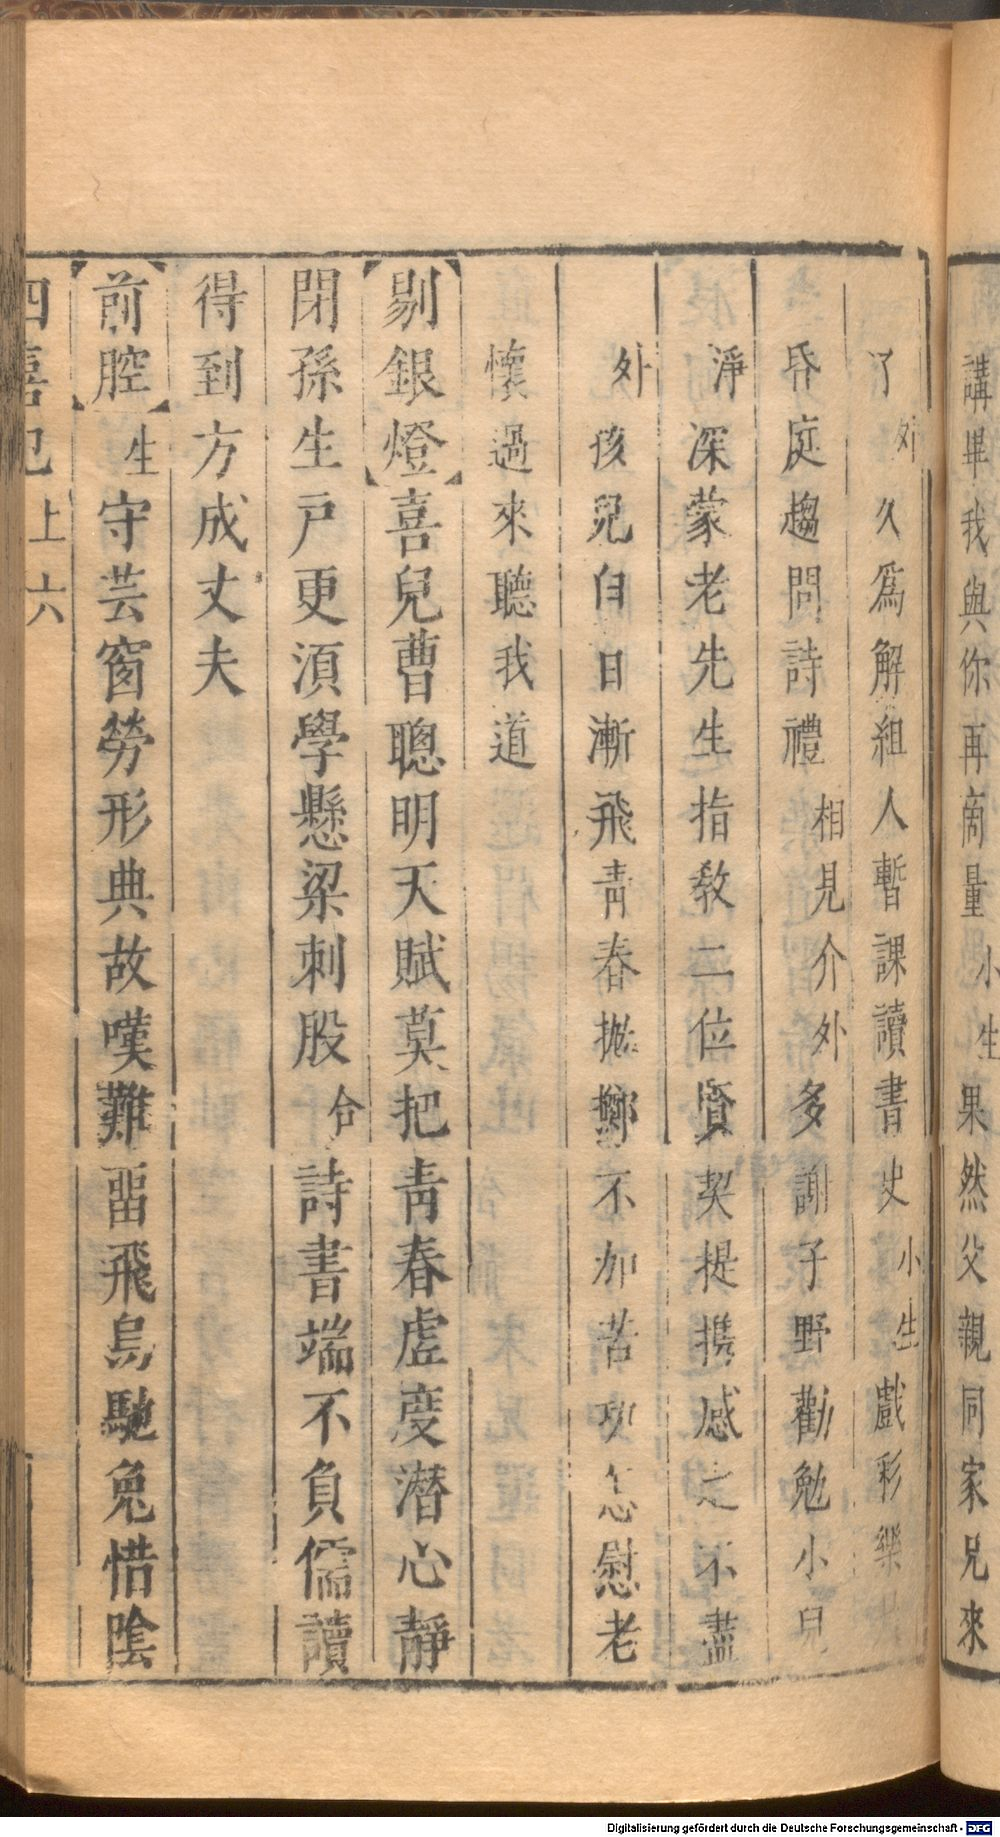 講畢我與你再商量小生果然父親同家兄來
了外久爲解組人暫課讀書史小生戲彩樂
昏庭趨問詩禮相見介外多謝子野勸勉小兒
淨深蒙老先生指敎二位賢契提携感之不盡
外孩兒白日漸飛靑春拋擲不加苦功怎慰老
懷過來聽我道
剔銀燈喜兒曹聰明天賦莫把靑春虛度潜心靜
閉孫生戸更湏學懸梁刺股合詩書端不負儒讀
得到方成丈夫
前腔生守芸窗勞形典故嘆難畱飛烏馳兔惜陰
四喜記上六
Digitalisierung gefördert durch die Deutsche Forschungsgemeinschaft - DFG